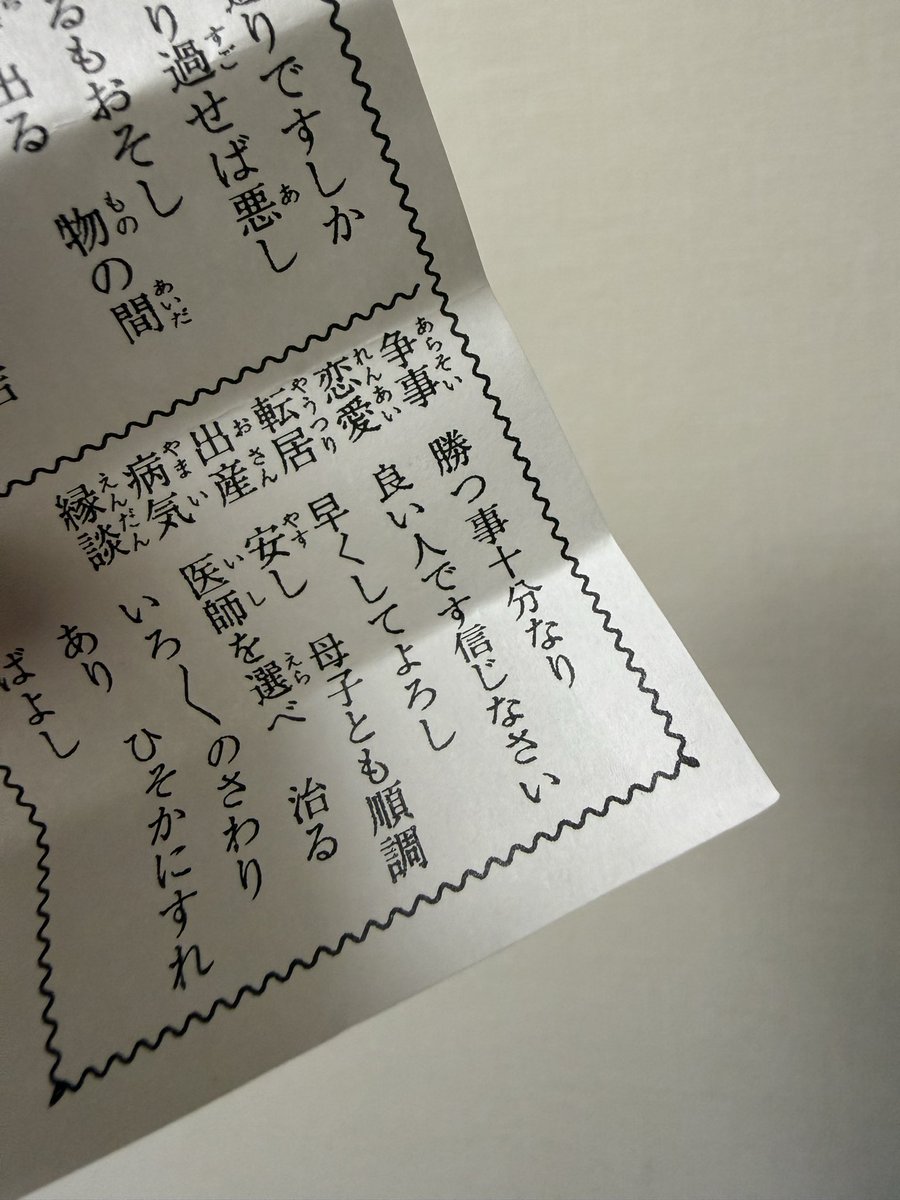 りですしか
り過せば悪し
るもおそし
出る　物の間
争事　勝つ事十分なり
恋愛　良い人です信じなさい
転居　早くしてよろし
出産　安し　母子とも順調
病気　医師を選べ　治る
縁談　いろ〳〵のさわり
あり　ひそかにすれ
ばよし